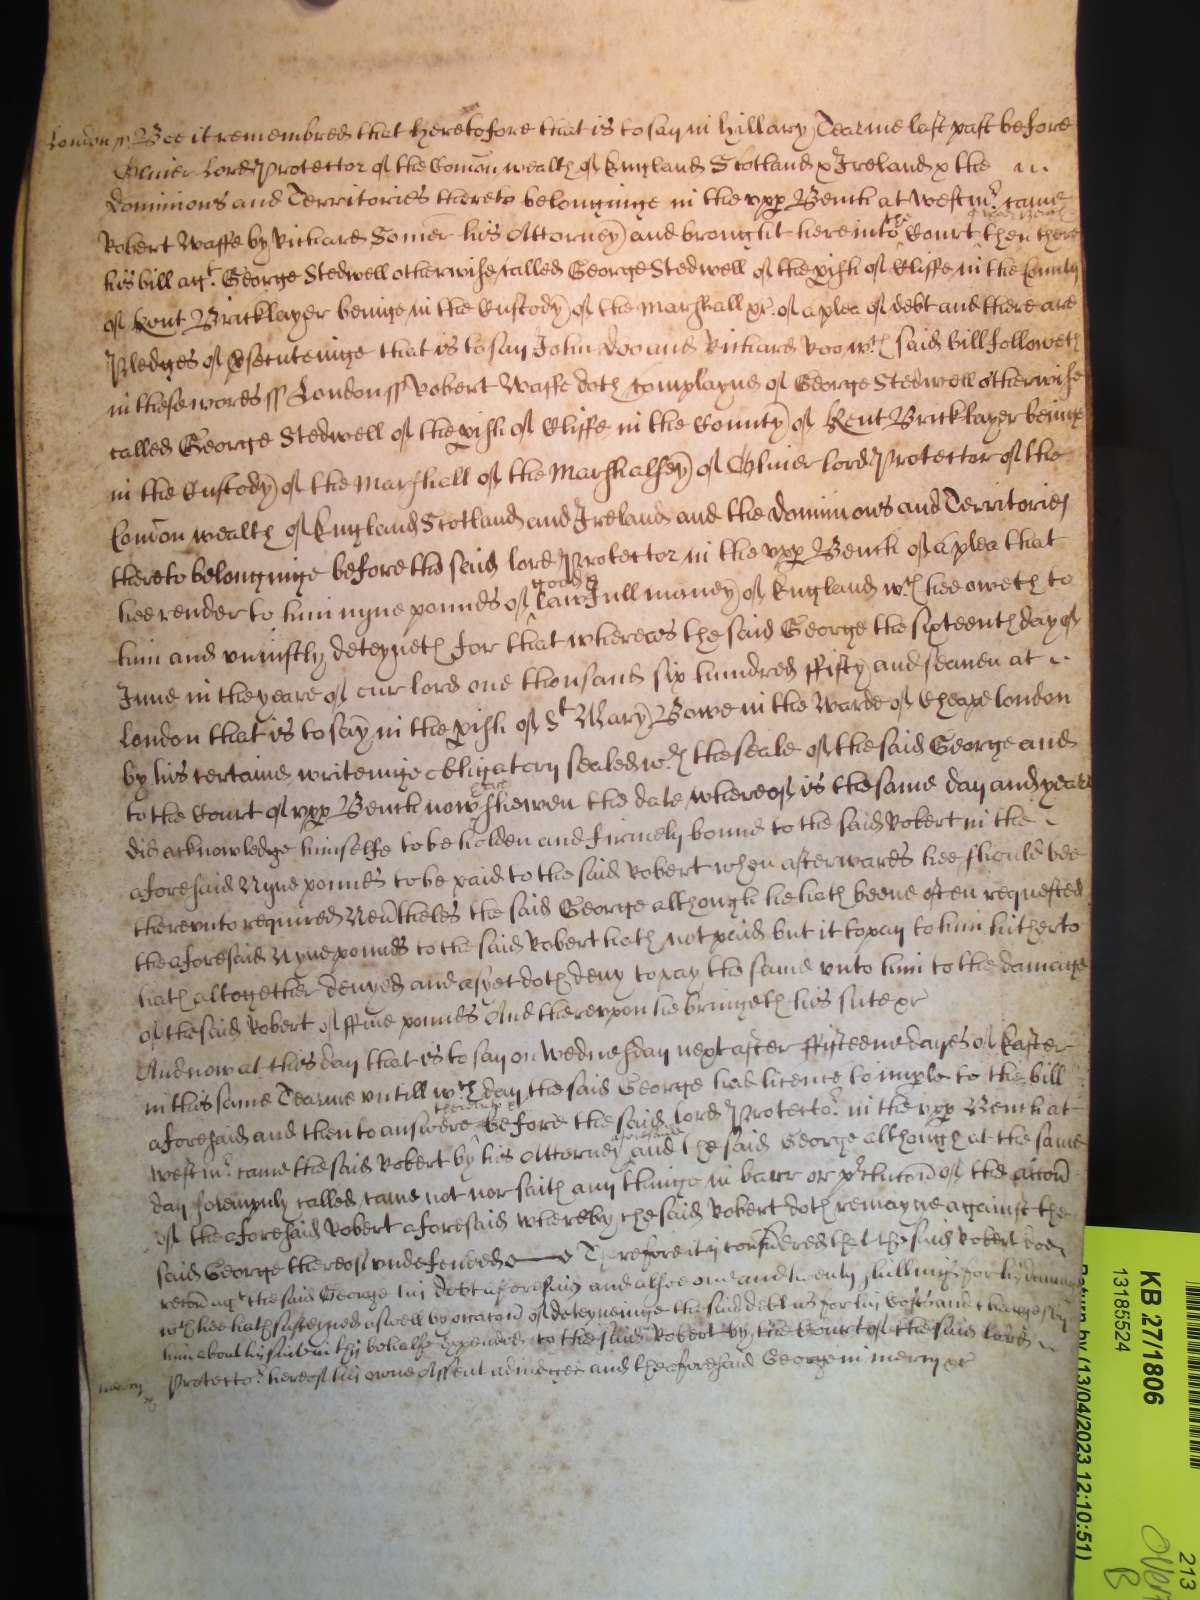 London ss Bee it remembred that heretofore that is to say in Hillary Tearme last past before
Oliver Lord Protector of the Comon wealth of England Scotland & Ireland & the
Dominions and Territories thereto belonginge in the vpp Bench at Westmr. came
Robert Wasse by Richard Somer his Attorney and brought here into the Court then there
his bill agt. George Stedwell otherwise called George Stedwell of the pish of Cliffe in the County
of Kent Bricklayer beinge in the Custody of the Marshall &c. of a plea of debt and there are
Pledges of psecuteinge that is to say John Doo and Richard Roo wch said bill followeth
in these words ss London ss Robert Wasse doth complayne of George Stedwell otherwise
called George Stedwell of the pish of Cliffe in the County of Kent Bricklayer beinge
in the Custody of the Marshall of the Marshalsey of Oliver lord Protector of the
Comon wealth of England Scotland and Ireland and the Dominions and Territories
thereto belonginge before the said lord Protector in the vpp Bench of a plea that
hee render to him nyne pounds of good & lawfull money of England wch hee oweth to
him and vniustly deteyneth for that whereas the said George the sixteenth day of
June in the yeare of our lord one thousand six hundred ffifty and seaven at
London that is to say in the pish of St Mary Bowe in the Warde of Cheape london
by his certaine writeinge obligatory sealed wth the seale of the said George and
to the Court of vpp Bench now here shewen the date whereof is the same day and yeare
did acknowledge himselfe to be holden and firmely bound to the said Robert in the
aforesaid Nyne pounds to be paid to the said Robert when afterwards hee should bee
therevnto required Neutheles the said George although he hath beene often requested
the aforesaid Nyne pounds to the said Robert hath not paid but it to pay to him hitherto
hath altogether denyed and as yet doth deny to pay the same vnto him to the damage
of the said Robert of ffive pounds And therevpon he bringeth his sute &c
And now at this day that is to say on Wednesday next after ffifteene dayes of Easter
in this same Tearme vntill wch day the said George had licence to imple to the bill
aforesaid and then to answere therevnto &c before the said lord Protector. in the vpp Bench at
Westmr. came the said Robert by his Attorney aforesaid and The said George although at the same
day solempnly called came not nor saith any thinge in barr or p'clucon of the accon
of the aforesaid Robert aforesaid whereby the said Robert doth remayne against the
said George thereof vndefended Therefore it is considered that the said Robert doe
recou agt the said George his debt aforesaid and alsoe one and twenty shillings for his damages
wch hee hath susteyned aswell by occacon of deteyneinge the said debt as for his Costs and Charges by
him about his suite in this behalfe expended to the said Robert by the Court of the said lord
Protector. hereof his owne Assent adiudged and the aforesaid George in mercy &c
mercy
KB 27/1806
13185524
Return by (13/04/2023 12:10:51)
213